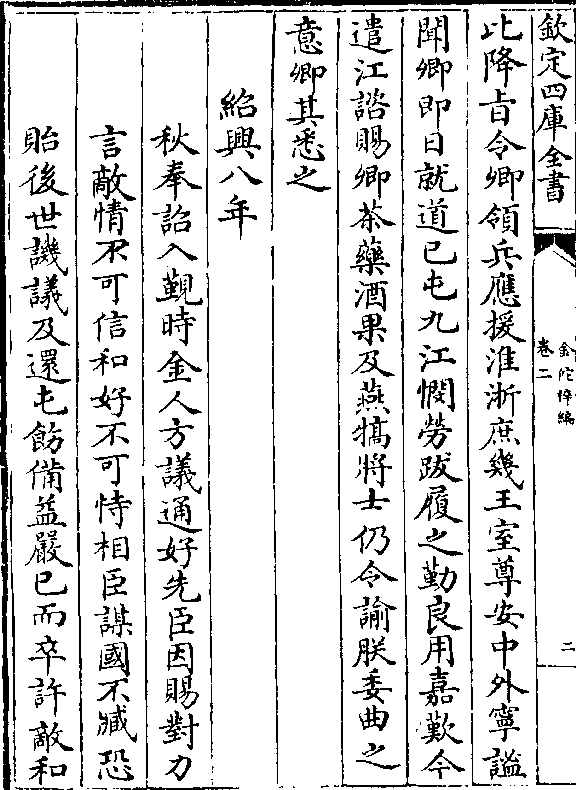 欽定四庫全書
金陀稡編
卷二
二
比降旨令卿領兵應援淮浙庶幾王室尊安中外寧謐
聞卿即日就道已屯九江憫勞跋履之勤良用嘉歎今
遣江諮賜卿茶藥酒果及燕犒將士仍令諭朕委曲之
意卿其悉之
紹興八年
秋奉詔入覲時金人方議通好先臣因賜對力
言敵情不可信和好不可恃相臣謀國不臧恐
貽後世譏議及還屯飭備益嚴已而卒許敵和